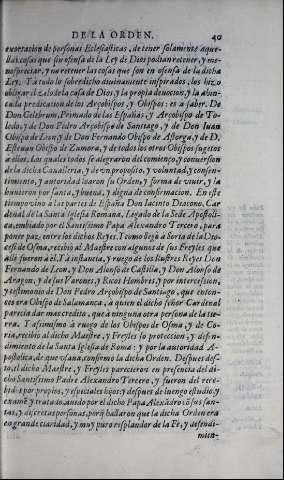 DE LA ORDEN. 40
exortacion de personas Eclesiasticas, de tener solamente aque-
llas cosas que sin ofensa de la Ley de Dios podian retener, y me-
nospreciar, y no retener las cosas que son en ofensa de la dicha
Ley. Y a todo lo sobredicho divinamente inspirados, los hizo
obligar el zelo de la casa de Dios, y la propia devocion, y la abin-
cada predicacion de los Arçobispos, y Obispos: es a saber. De
Don Celebrum, Primado de las Españas, y Arçobispo de To-
ledo, y de Don Pedro Arçobispo de Santiago, y de Don Iuan
Obispo de Leon, y de Don Fernando Obispo de Astorga, y de D.
Estevan Obispo de Zamora, y de todos los otros Obispos sugetos
a ellos. Los quales todos se alegraron del comienço, y conversion
de la dicha Cavalleria, y de un proposito, y voluntad, y consen-
timiento, y autoridad loaron su Orden, y forma de vivir, y la
huvieron por santa, y buena, y digna de confirmacion. En este
tiempo vino a las partes de España Don Iacinto Diacono, Car
denal de la Santa Iglesia Romana, Legado de la Sede Apostoli-
ca, embiado por el Santissimo Papa Alexandro Tercero, para
poner paz entre los dichos Reyes. Y como llegò a Soria de la Dio-
cesi de Osma, recibiò al Maestre con algunos de sus Freyles que
allà fueron à èl. Y à instancia, y ruego de los Illustres Reyes Don
Fernando de Leon, y Don Alonso de Castilla, y Don Alonso de
Aragon, y de sus Varones, y Ricos Hombres, y por intercession,
y testimonio de Don Pedro Arçobispo de Santiago, que enton-
ces era Obispo de Salamanca, à quien el dicho señor Cardenal
parecia dar mas credito, que à ninguna otra persona de la tie-
rra. Y assimismo à ruego de los Obispos de Osma, y de Co-
ria, recibiò al dicho Maestre, y Freyles so proteccion, y defen-
dimiento de la Santa Iglesia de Roma: y por la autoridad A-
postolica, de que usava, confirmò la dicha Orden. Despues des-
to, el dicho Maestre, y Freyles parecieron en presencia del di-
cho Santissimo Padre Alexandro Tercero, y fueron del rece-
bidos por propios, y especiales hijos: y despues de luengo estudio, y
examẽ, y tratado, avido por el dicho Papa Alexãdro cõ sus san-
tas, y discretas personas, porq̃ hallaron que la dicha Orden era
en grande claridad, y muy puro resplandor de la Fè, y defendi-
mien-